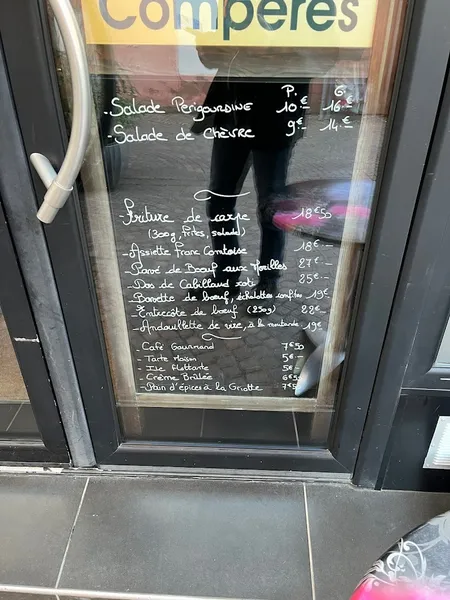 Compères
P. G.
- Salade Perigourdine 10.€- 16.€-
- Salade de Chèvre 9€- 14.€-
- Friture de carpe 18€50
(300g, frites, salade)
- Assiette Franc Comtoise 18€-
- Pavé de Boeuf aux Morilles 27€-
- Dos de Cabillaud roti 25€-
- Bavette de boeuf, échalottes confites 19€-
- Entrecôte de boeuf (250g) 22€-
- Andouillette de vire, à la moutarde 19€
- Café Gourmand 7€50
- Tarte Maison 5€-
- Ile Flottante 5€-
- Crème Brûlée 6€50
- Pain d'épices à la Griotte